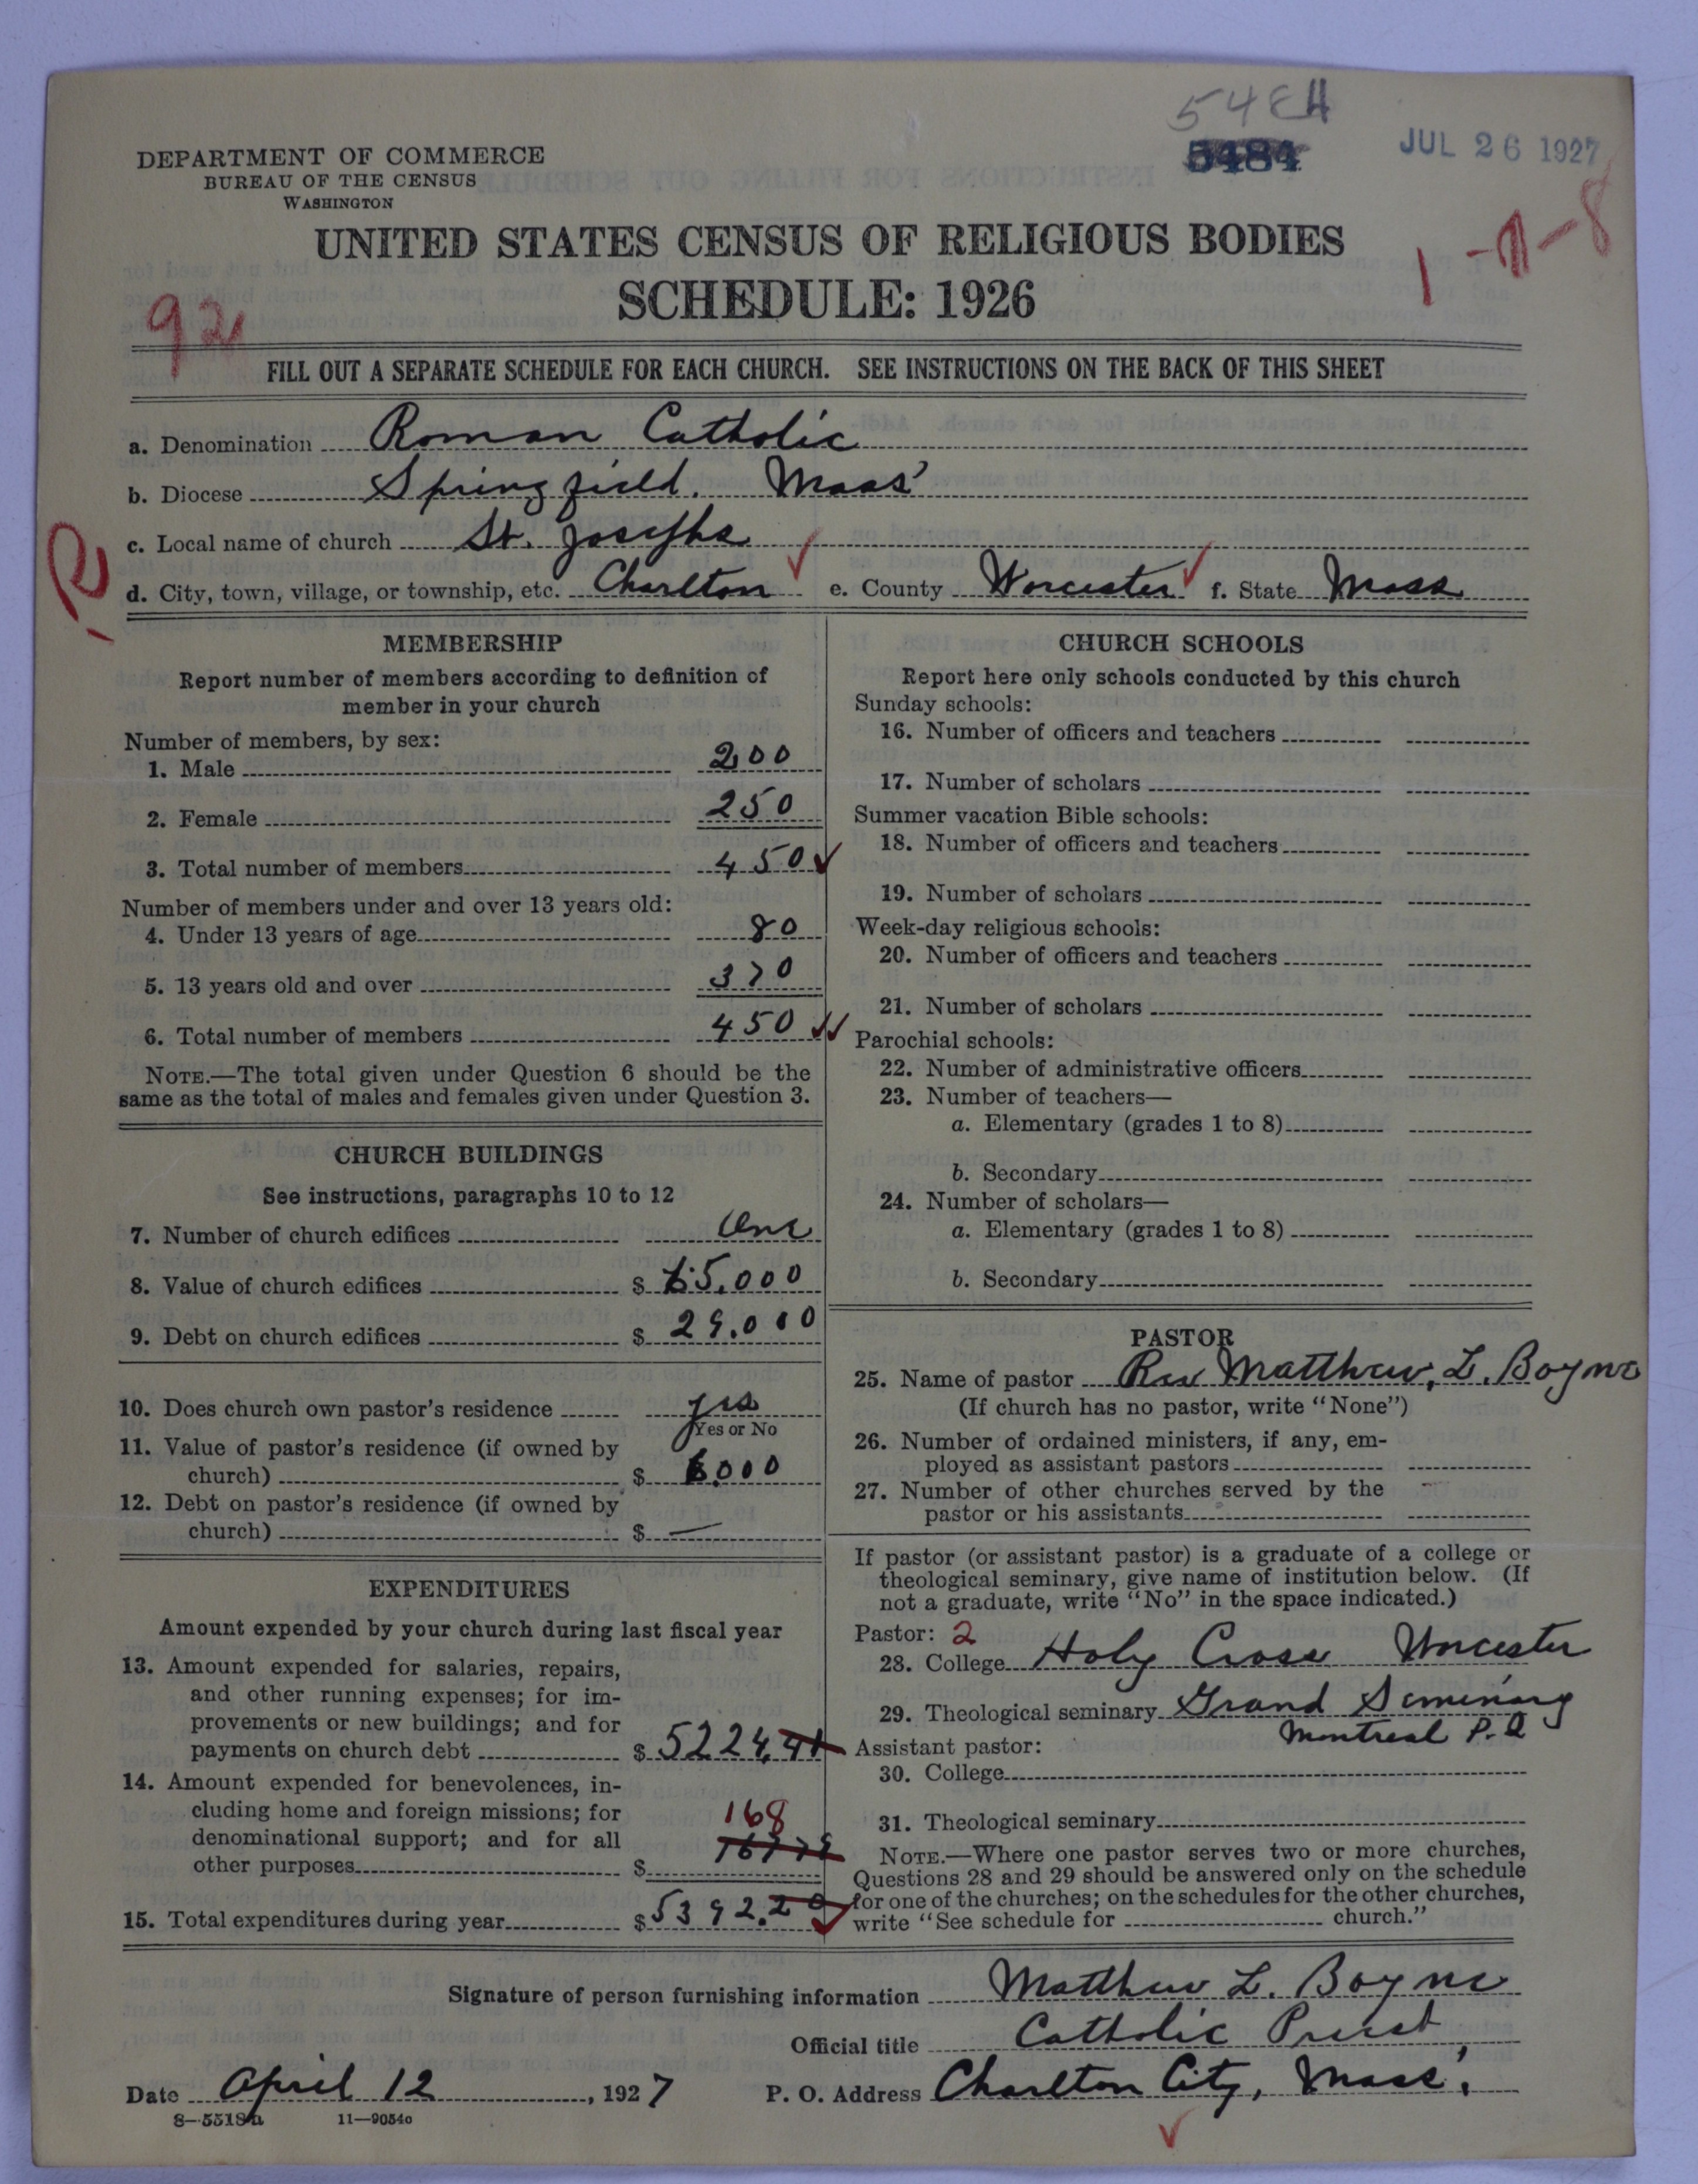 54EH
5484
JUL 26 1927
DEPARTMENT OF COMMERCE
BUREAU OF THE CENSUS
WASHINGTON
UNITED STATES CENSUS OF RELIGIOUS BODIES
SCHEDULE: 1926
1-7-8
92
FILL OUT A SEPARATE SCHEDULE FOR EACH CHURCH. SEE INSTRUCTIONS ON THE BACK OF THIS SHEET
a. Denomination Roman Catholic
b. Diocese Springfield. Mass'
c. Local name of church St. Josephs
R
d. City, town, village, or township, etc. Charlton e. County Worcester f. State Mass
MEMBERSHIP
Report number of members according to definition of
member in your church
Number of members, by sex:
1. Male 200
2. Female 250
3. Total number of members 450
Number of members under and over 13 years old:
4. Under 13 years of age 80
5. 13 years old and over 370
6. Total number of members 450
NOTE.—The total given under Question 6 should be the
same as the total of males and females given under Question 3.
CHURCH BUILDINGS
See instructions, paragraphs 10 to 12
7. Number of church edifices One
8. Value of church edifices $ 65,000
9. Debt on church edifices $ 29,000
10. Does church own pastor's residence yes
Yes or No
11. Value of pastor's residence (if owned by
church) $ 6000
12. Debt on pastor's residence (if owned by
church) $ —
EXPENDITURES
Amount expended by your church during last fiscal year
13. Amount expended for salaries, repairs,
and other running expenses; for im-
provements or new buildings; and for
payments on church debt $ 5224.41
14. Amount expended for benevolences, in-
cluding home and foreign missions; for
denominational support; and for all 168
other purposes $ 167 79
15. Total expenditures during year $ 5392.20
CHURCH SCHOOLS
Report here only schools conducted by this church
Sunday schools:
16. Number of officers and teachers
17. Number of scholars
Summer vacation Bible schools:
18. Number of officers and teachers
19. Number of scholars
Week-day religious schools:
20. Number of officers and teachers
21. Number of scholars
Parochial schools:
22. Number of administrative officers
23. Number of teachers—
a. Elementary (grades 1 to 8)
b. Secondary
24. Number of scholars—
a. Elementary (grades 1 to 8)
b. Secondary
PASTOR
25. Name of pastor Rev Matthew, L. Boyne
(If church has no pastor, write "None")
26. Number of ordained ministers, if any, em-
ployed as assistant pastors
27. Number of other churches served by the
pastor or his assistants
If pastor (or assistant pastor) is a graduate of a college or
theological seminary, give name of institution below. (If
not a graduate, write "No" in the space indicated.)
Pastor: 2
28. College Holy Cross Worcester
29. Theological seminary Grand Seminary
Montreal P.Q
Assistant pastor:
30. College
31. Theological seminary
NOTE.—Where one pastor serves two or more churches,
Questions 28 and 29 should be answered only on the schedule
for one of the churches; on the schedules for the other churches,
write "See schedule for church."
Signature of person furnishing information Matthew L. Boyne
Official title Catholic Priest
Date April 12, 1927 P. O. Address Charlton City, Mass.
8—5518a 11—9054c